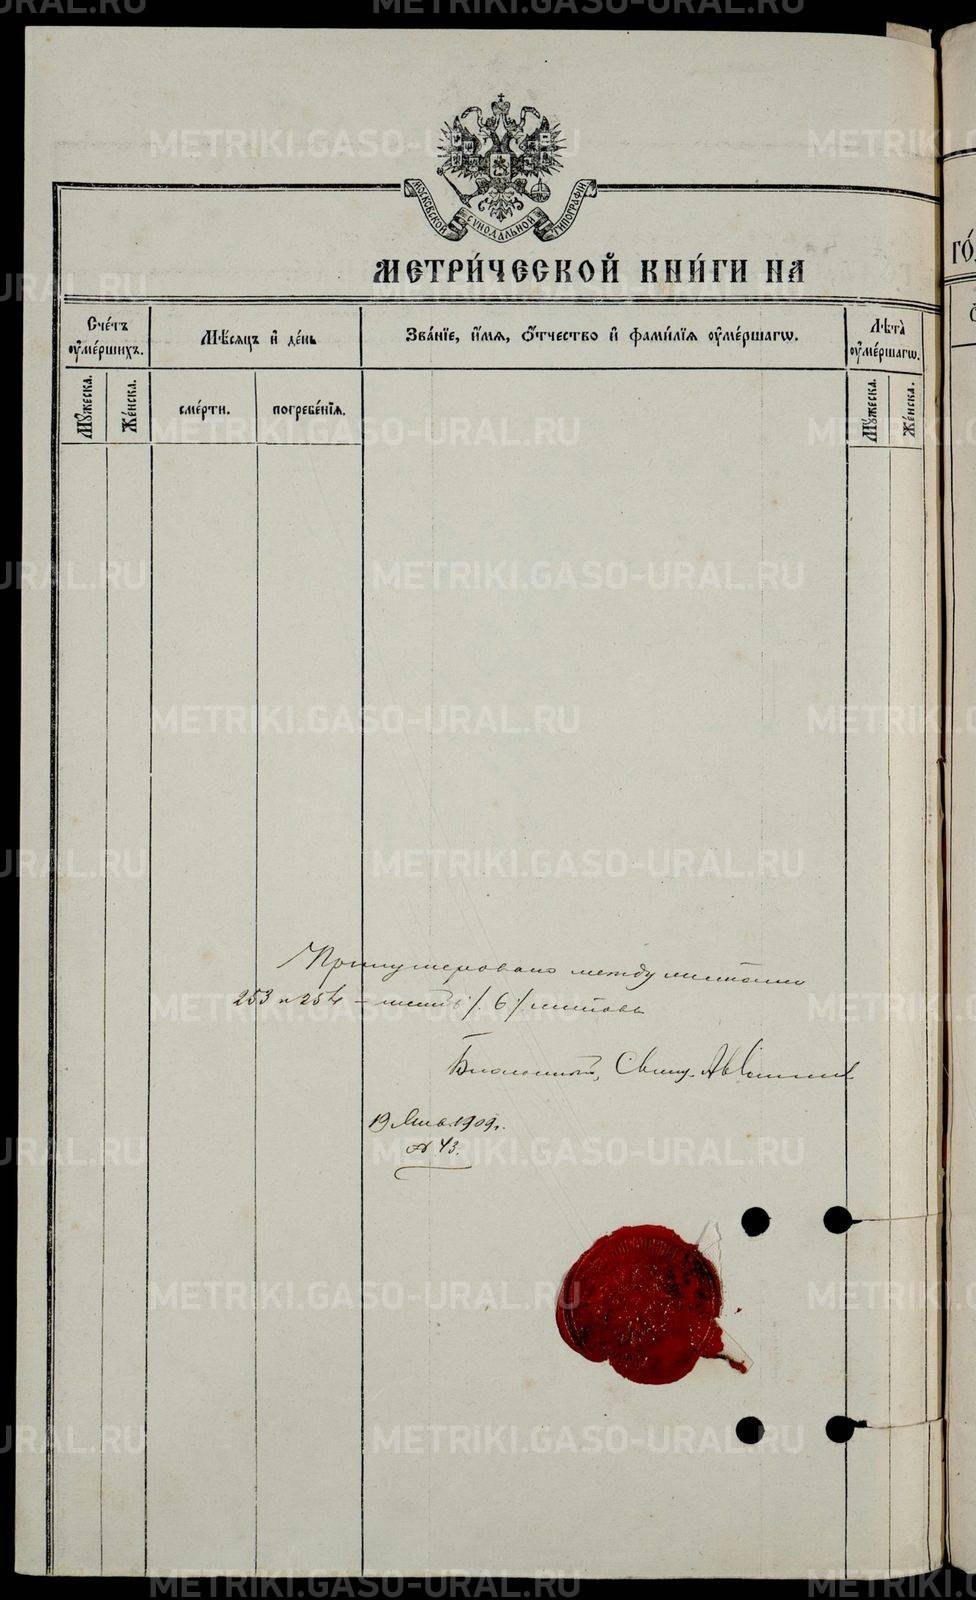 METRIKI.GASO-URAL.RU
МОСКОВСКОЙ СѴНОДАЛЬНОЙ ТИПОГРАФІИ
МЕТРИ́ЧЕСКОЙ КНИ́ГИ НА
Сче́тъ ᲂу҆ме́ршихъ.
Мѣ́сяцъ и҆ де́нь
Зва́нїе, и҆́мѧ, ѻ҆́тчество и҆ фами́лїѧ ᲂу҆ме́ршагѡ.
Лѣта̀ ᲂу҆ме́ршагѡ.
Мꙋ́жеска.
Же́нска.
сме́рти.
погребе́нїѧ.
Мꙋ́жеска.
Же́нска.
Пронумеровано между листами
253 и 254 – шесть /6/ листовъ
Благочинный, Свящ.
19 Янв. 1909 г.
№ 43.